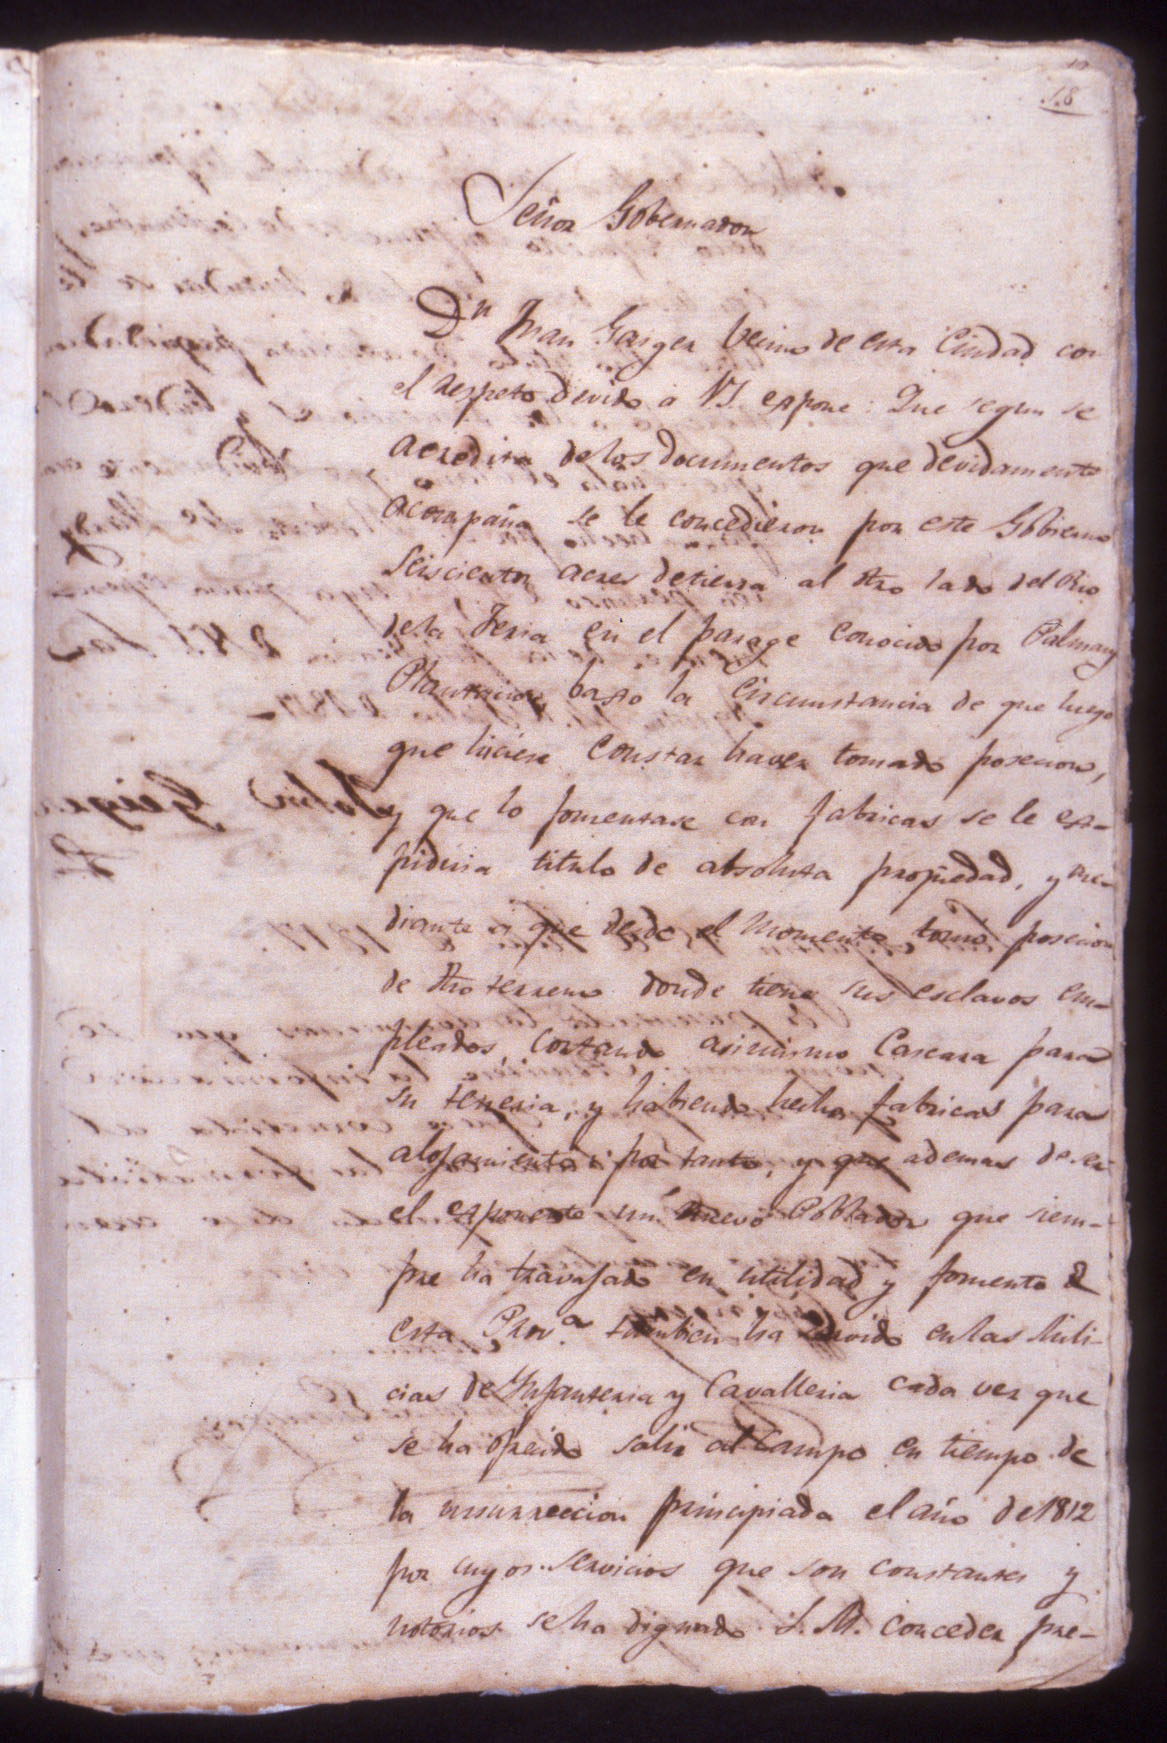 18
Señor Gobernador
Dn Juan Gaiger vecino de esta Ciudad con
el respeto devido a VS. expone: Que segun se
acredita de los documentos que devidamente
acompaña se le concedieron por este Gobierno
seiscientos acres de tierra al otro lado del Rio
de la en el parage conocido por
Plantacion, baxo la circunstancia de que luego
que hiciere constar haver tomado posecion,
y que lo fomentase con fabricas se le es-
pidiria titulo de absoluta propiedad, y me-
diante a que desde el momento tomó posecion
de dho terreno donde tiene sus esclavos em-
pleados, cortando asimismo Cascara para
su teneria, y habiendo hecho fabricas para
alojamiento: por tanto, y que ademas de ser
el exponente un nuevo Poblador que siem-
pre ha travajado en utilidad y fomento de
esta Prova. tambien ha servido en las Mili-
cias de Infanteria y Cavalleria cada vez que
se ha ofrecido salir al Campo en tiempo de
la insurreccion principiada el año de 1812
por cuyos servicios que son constantes y
notorios se ha dignado S. M. conceder pre-